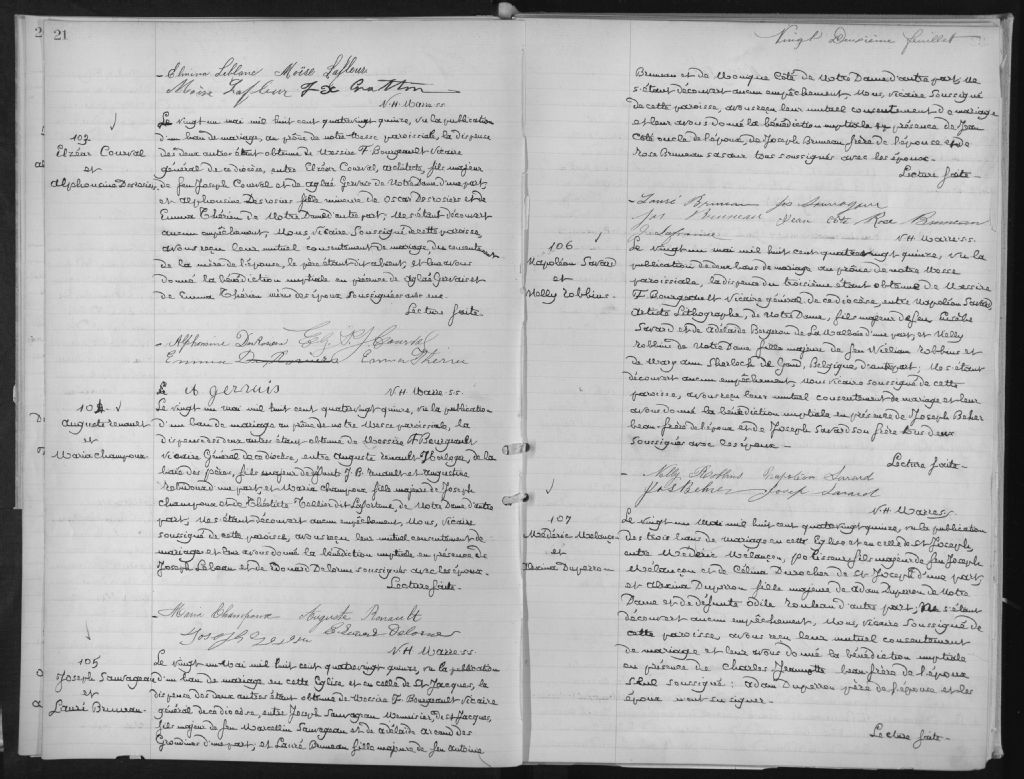 21
Elmina Leblanc Moïse Lafleur
Moïse Lafleur
N.H. Marre ss.
102
Elzéar Courval
et
Alphonsine Desrosiers
Le vingt un mai mil huit cent quatrevingt quinze, vu la publication
d'un ban de mariage, au prône de notre Messe paroissiale, la dispense
des deux autres étant obtenue de Messire F. Bourgeault Vicaire
général de ce diocèse, entre Elzéar Courval, architecte, fils majeur
de feu Joseph Courval et de aglaé Gervais de Notre Dame d'une part,
et alphonsine Desrosiers fille mineure de Oscar Desrosiers et de
Emma Thérien de Notre Dame d'autre part, Ne s'étant découvert
aucun empêchement, Nous, Vicaire Soussigné de cette paroisse,
avons reçu leur mutuel consentement de mariage, du consentement
de la mère de l'épouse, le père étant dit absent, et leur avons
donné la bénédiction nuptiale en présence de aglaé Gervais et
de Emma Thérien mères des époux soussignées avec eux.
Lecture faite.
Alphonsine Desrosiers Courval
Emma Emma Therien
A gervais
N.H. Marre ss.
auguste renault
et
Maria Champoux
Le vingt un mai mil huit cent quatrevingt quinze, vu la publication
d'un ban de mariage au prône de notre Messe paroissiale, la
dispense des deux autres étant obtenue de Messire F. Bourgeault
Vicaire Général de ce diocèse, entre auguste renault Horloger, de la
baie des pères, fils majeur de défunt J.B. renault et augustine
d'une part, et Maria Champoux fille majeure de Joseph
Champoux et de Théotiste Tellier dit Lafortune, de Notre Dame d'autre
part, Ne s'étant découvert aucun empêchement, Nous, Vicaire
soussigné de cette paroisse, avons reçu leur mutuel consentement de
mariage et leur avons donné la bénédiction nuptiale en présence de
Joseph Lebeau et de Edouard Delorme soussignés avec les époux.
Lecture faite.
Maria Champoux Auguste Renault
Joseph Edouard Delorme
N.H. Marre ss.
105
Joseph Sauvageau
et
Lauré Bruneau
Le vingt un Mai mil huit cent quatrevingt quinze, vu la publication
d'un ban de mariage en cette Eglise et en celle de St Jacques, la
dispense des deux autres étant obtenue de Messire F. Bourgeault Vicaire
général de ce diocèse, entre Joseph Sauvageau Menuisier, de St Jacques,
fils majeur de feu Marcellin Sauvageau et de adélaïde arcand des
Grondines d'une part, et Lauré Bruneau fille majeure de feu antoine
Vingt Deuxième feuillet
Bruneau et de Monique Côté de Notre Dame d'autre part, Ne
s'étant découvert aucun empêchement, Nous, Vicaire soussigné
de cette paroisse, avons reçu leur mutuel consentement de mariage
et leur avons donné la bénédiction nuptiale en présence de Jean
Côté oncle de l'épouse, de Joseph Bruneau frère de l'épouse et de
rose Bruneau sa sœur tous soussignés avec les époux.
Lecture faite.
Lauré Bruneau Jos Sauvageau
Jos Bruneau Jean Coté Rose Bruneau
N.H. Marre ss.
106
Napoléon Savard
et
Nelly robbins
Le vingt un mai mil huit cent quatrevingt quinze, vu la
publication de deux bans de mariage au prône de notre Messe
paroissiale, la dispense du troisième étant obtenue de Messire
F. Bourgeault Vicaire général de ce diocèse, entre Napoléon Savard
Artiste Lithographe, de Notre Dame, fils majeur de feu Eusèbe
Savard et de adélaïde Bergeron de La Malbaie d'une part, et Nelly
robbins de Notre Dame fille majeure de feu William robbins et
de Mary ann Sherlock de Gand, Belgique, d'autre part; Ne s'étant
découvert aucun empêchement, Nous Vicaire soussigné de cette
paroisse, avons reçu leur mutuel consentement de mariage et leur
avons donné la bénédiction nuptiale en présence de Joseph Beher
beau-frère de l'époux et de Joseph Savard son frère tous deux
soussignés avec les époux.
Lecture faite.
Nelly Robbins Napoléon Savard
Joseph Savard
N.H. Marre ss.
107
Médéric Melançon
et
alexina Duperron
Le vingt un Mai mil huit cent quatrevingt quinze, vu la publication
des trois bans de mariage en cette Eglise et en celle de St Joseph
entre Médéric Melançon, polisseur, fils majeur de feu Joseph
Melançon et de Célina Durocher de St Joseph d'une part,
et alexina Duperron fille majeure de adam Duperron de Notre
Dame et de défunte Odile rouleau d'autre part, Ne s'étant
découvert aucun empêchement, Nous, Vicaire soussigné de
cette paroisse, avons reçu leur mutuel consentement
de mariage et leur avons donné la bénédiction nuptiale
en présence de Charles Jeannotte beau frère de l'époux
seul soussigné; adam Duperron père de l'épouse et les
époux n'ont su signer.
Lecture faite.